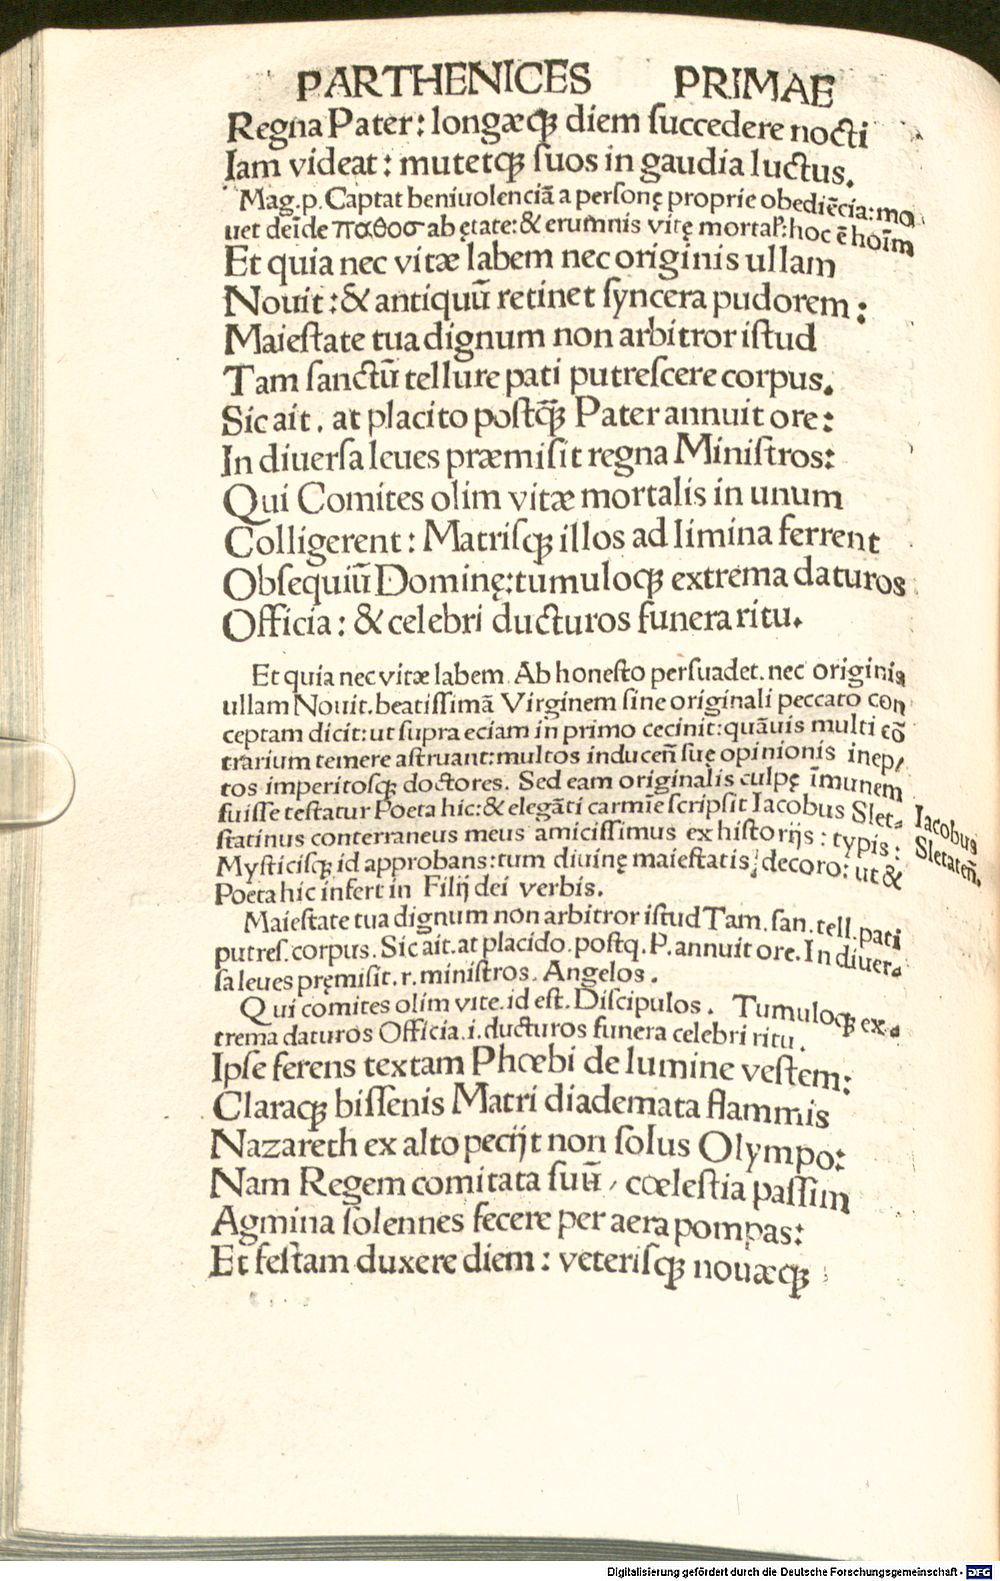 PARTHENICES PRIMAE
Regna Pater: longæq̃ diem ſuccedere nocti
Iam videat: mutetq̃ ſuos in gaudia luctus.
Mag.p. Captat beniuolenciã a perſonę proprie obediẽcia: mo
uet deĩde παθοσ ab ętate: & erumnis vitę mortal': hoc ẽ hoĩm
Et quia nec vitæ labem nec originis ullam
Nouit: & antiquũ retinet ſyncera pudorem:
Maieſtate tua dignum non arbitror iſtud
Tam ſanctũ tellure pati putreſcere corpus.
Sic ait. at placito poſtq̃ Pater annuit ore:
In diuerſa leues præmiſit regna Miniſtros:
Qui Comites olim vitæ mortalis in unum
Colligerent: Matriſq̃ illos ad limina ferrent
Obſequiũ Dominę: tumuloq̃ extrema daturos
Officia: & celebri ducturos funera ritu.
Et quia nec vitæ labem. Ab honeſto perſuadet. nec originis
ullam Nouit. beatiſſimã Virginem ſine originali peccato con
ceptam dicit: ut ſupra eciam in primo cecinit: quãuis multi cõ
trarium temere aſtruant: multos induceñ ſuę opinionis inep/
tos imperitoſq̃ doctores. Sed eam originalis culpę ĩmunem
fuiſſe teſtatur Poeta hic: & elegãti carmĩe ſcripſit Iacobus Slet-
ſtatinus conterraneus meus amiciſſimus ex hiſtorijs: typis:
Myſticiſq̃ id approbans: tum diuinę maieſtatis decoro: ut &
Poeta hic infert in Filij dei verbis.
Iacobus
Sletateñ.
Maieſtate tua dignum non arbitror iſtud Tam. ſan. tell. pati
putreſ. corpus. Sic ait. at placido. poſtq. P. annuit ore. In diuer-
ſa leues pręmiſit. r. miniſtros. Angelos.
Qui comites olim vite. id eſt. Diſcipulos. Tumuloq̃ ex-
trema daturos Officia. i. ducturos funera celebri ritu.
Ipſe ferens textam Phœbi de lumine veſtem:
Claraq̃ biſſenis Matri diademata flammis
Nazareth ex alto pecijt non ſolus Olympo:
Nam Regem comitata ſuũ / cœleſtia paſſim
Agmina ſolennes fecere per aera pompas:
Et feſtam duxere diem: veteriſq̃ nouæq̃
Digitalisierung gefördert durch die Deutsche Forschungsgemeinschaft - DFG